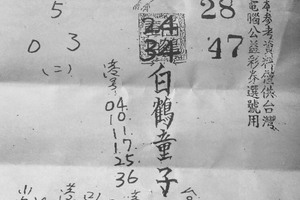 本參考資料僅供台灣
電腦公益彩券選號用
28
47
24
34
白鶴童子
5
0 3
(二)
04
10
11
17
25
36